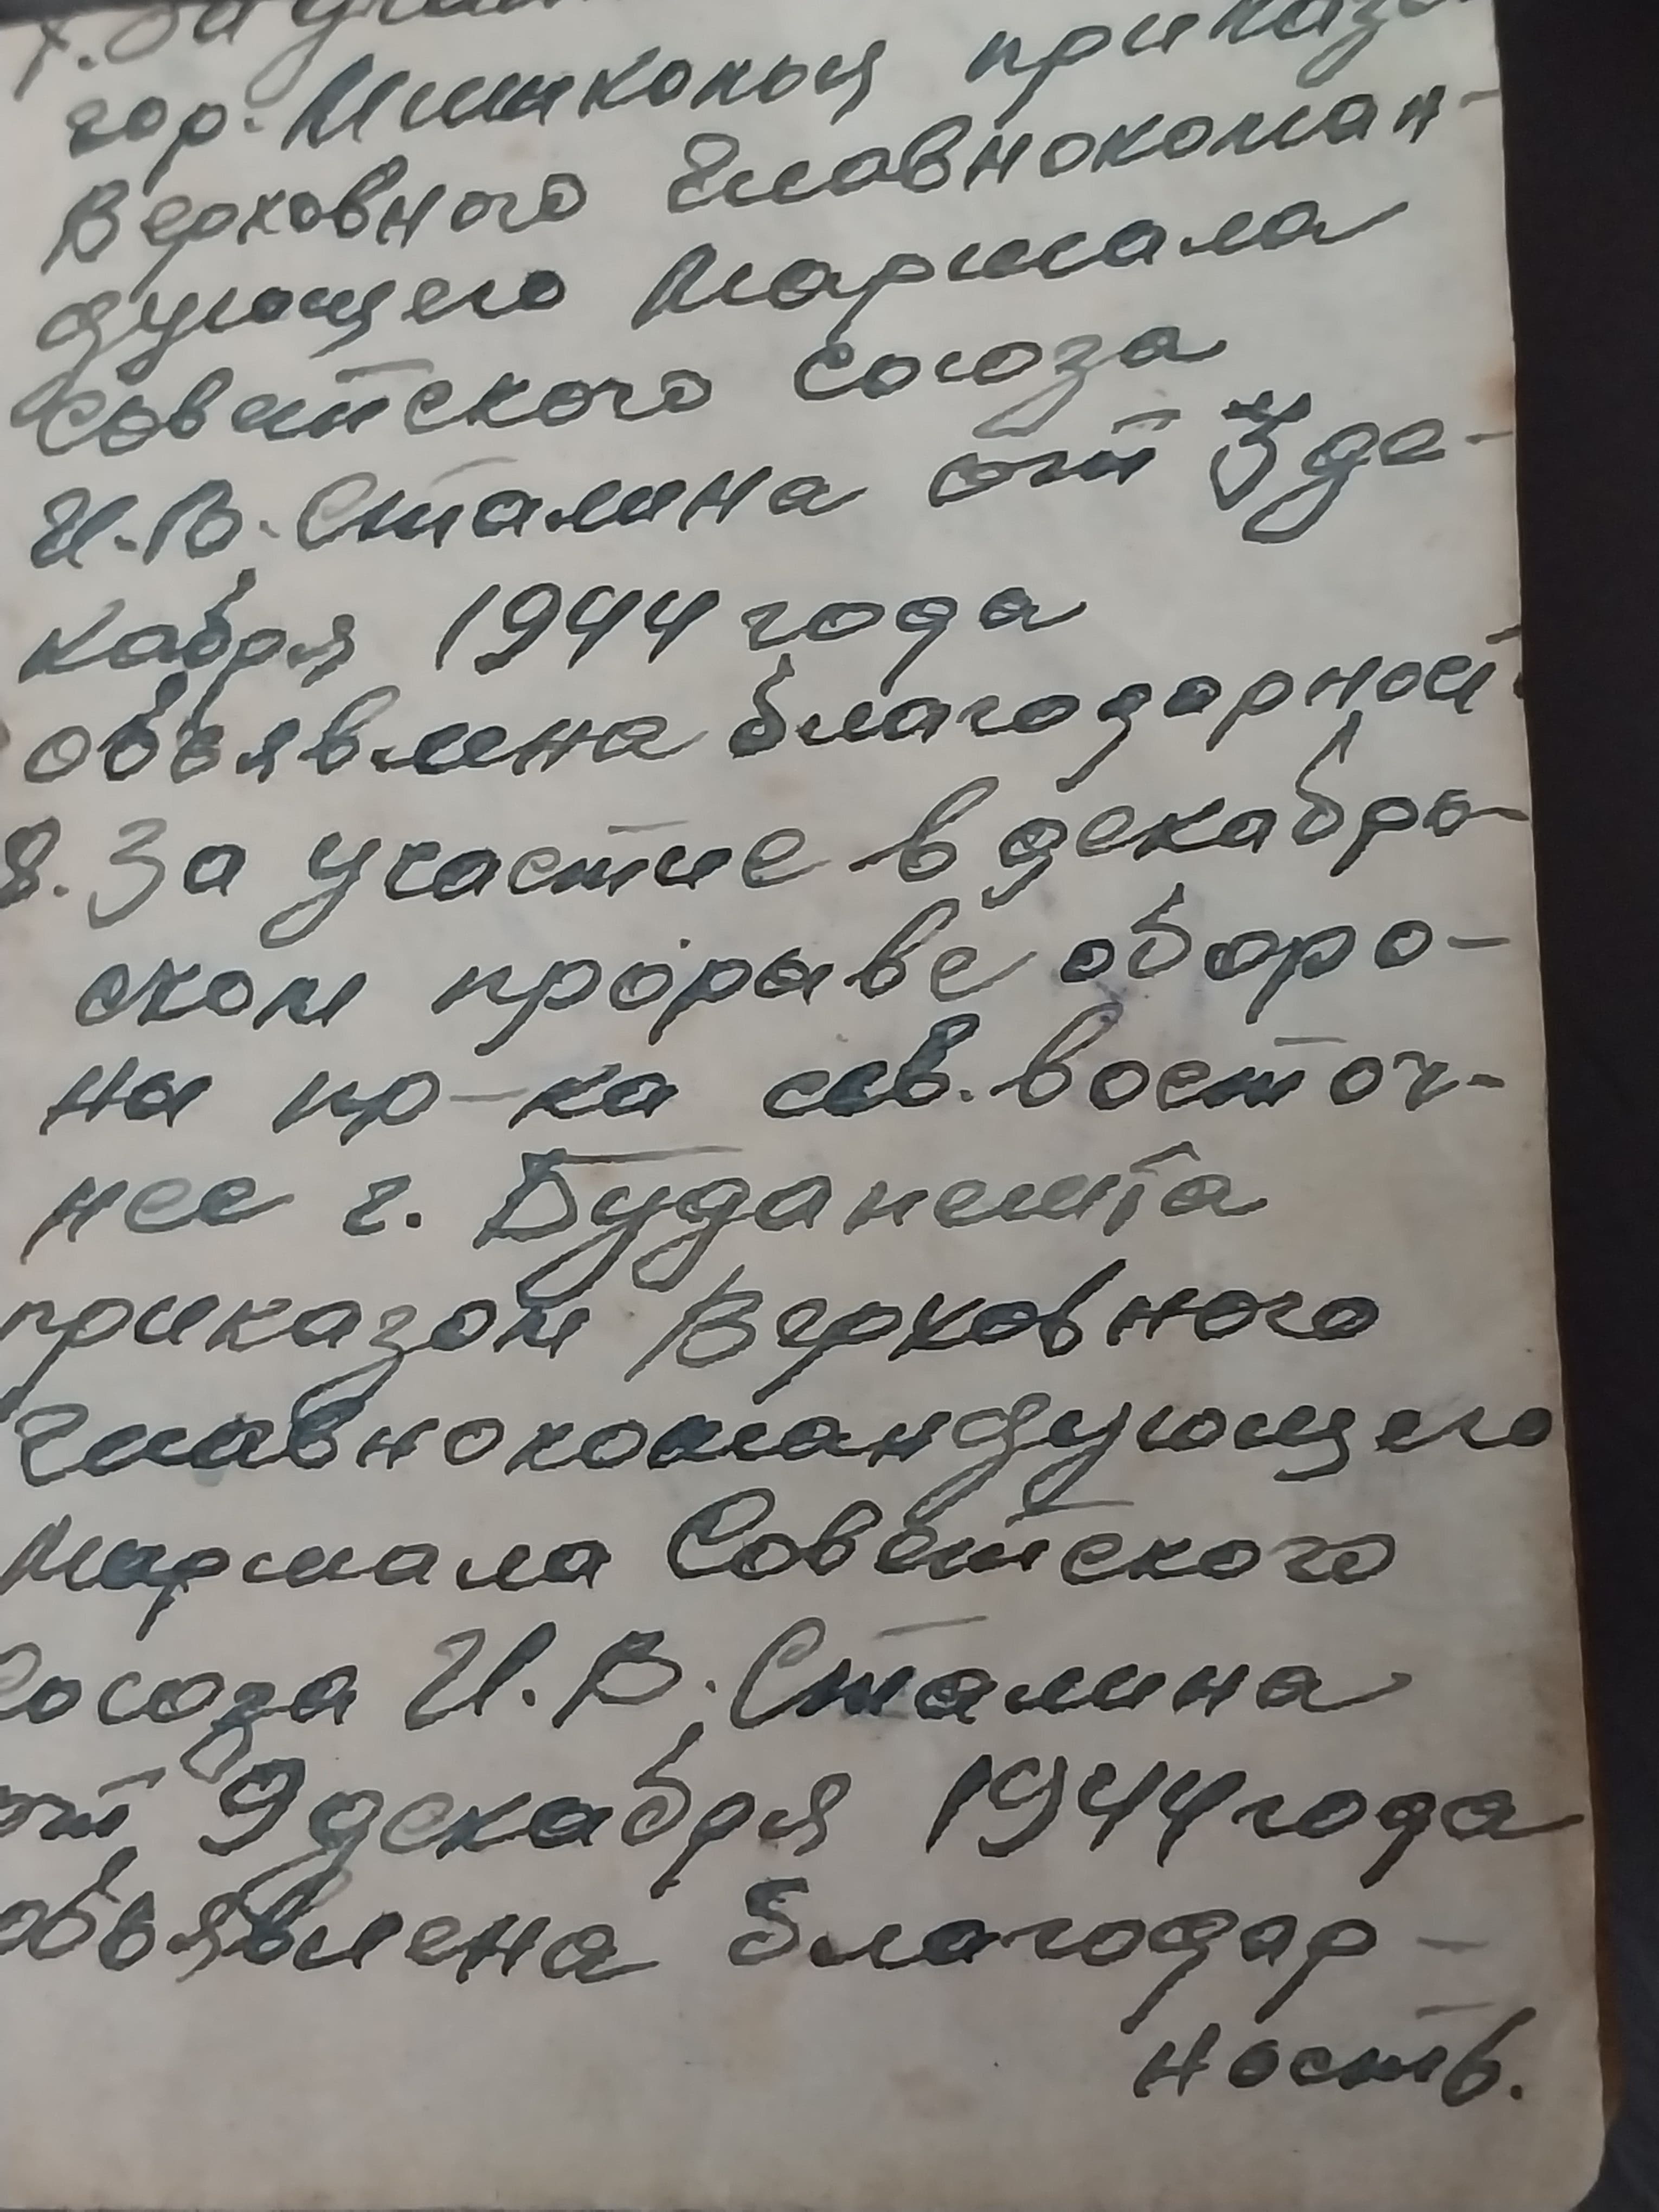 7. За
гор. Мишкольц приказо
Верховного Главнокоман-
дующего Маршала
Советского Союза
И.В. Сталина от 3 де-
кабря 1944 года
объявлена благодарност
8. За участие в декабрь
ском прорыве оборо-
на пр-ка сев. восточ-
нее г. Будапешта
приказом Верховного
Главнокомандующего
Маршала Советского
Союза И.В. Сталина
от 9 декабря 1944 года
объявлена благодар-
ность.